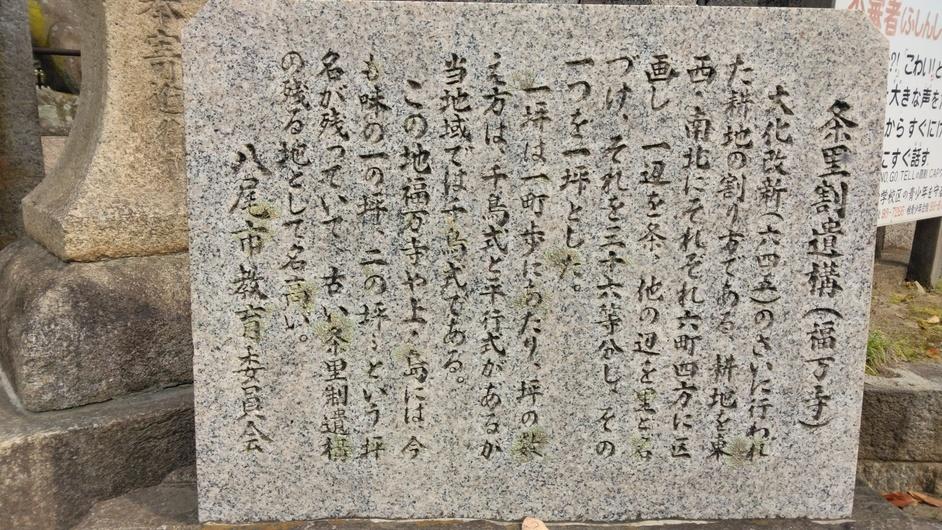 条里割遺構(福万寺)
大化改新(六四五)のさいに行われ
た耕地の割り方である 耕地を東
西、南北にそれぞれ六町四方に区
画し 一辺を条、他の辺を里と名
づけ、それを三十六等分し、その
一つを一坪とした。
一坪は一町歩にあたり、坪の数
え方は、千鳥式と平行式があるが
当地域では千鳥式である。
この地福万寺や上之島には今
も味の一の坪、二の坪…という坪
名が残っていて、古い条里制遺構
の残る地として名高い。
八尾市教育委員会
不審者(ふしんし
?!「こわい!と
大きな声を
からすぐに
こすぐ話す